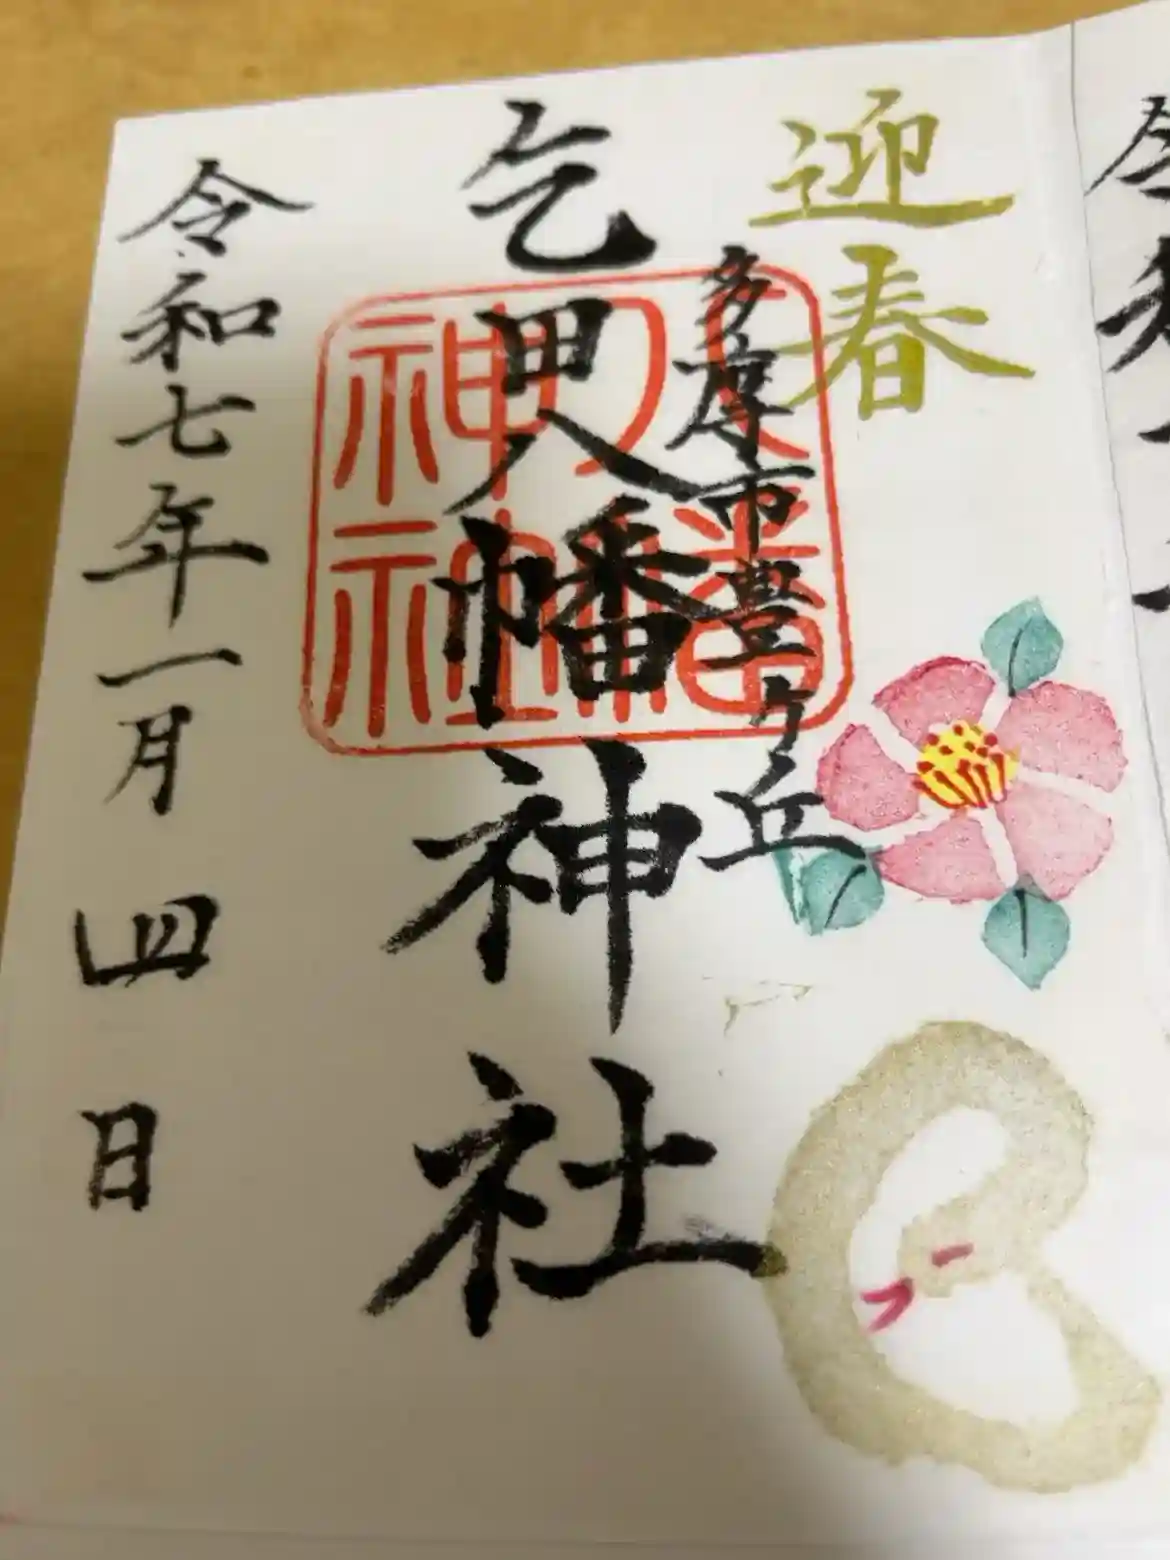 迎春
多摩市豊ヶ丘
乞田八幡神社
八幡神社
令和七年一月四日